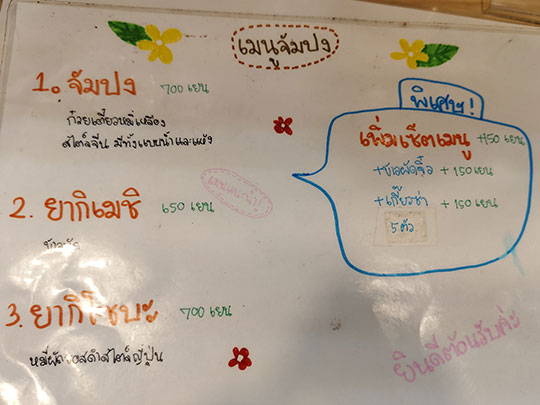 เมนูจัมปง
1. จัมปง 700 เยน
ก๋วยเตี๋ยวหมี่เหลือง
สไตล์จีน มีทั้งแบบน้ำและแห้ง
พิเศษ!
เพิ่มเซ็ตเมนู +150 เยน
+ข้าวผัดจิ๋ว +150 เยน
+เกี๊ยวซ่า +150 เยน
5 ตัว
แนะนำ!
2. ยากิเมชิ 650 เยน
ข้าวผัด
3. ยากิโซบะ 700 เยน
หมี่ผัดซอสดำสไตล์ญี่ปุ่น
ยินดีต้อนรับค่ะ